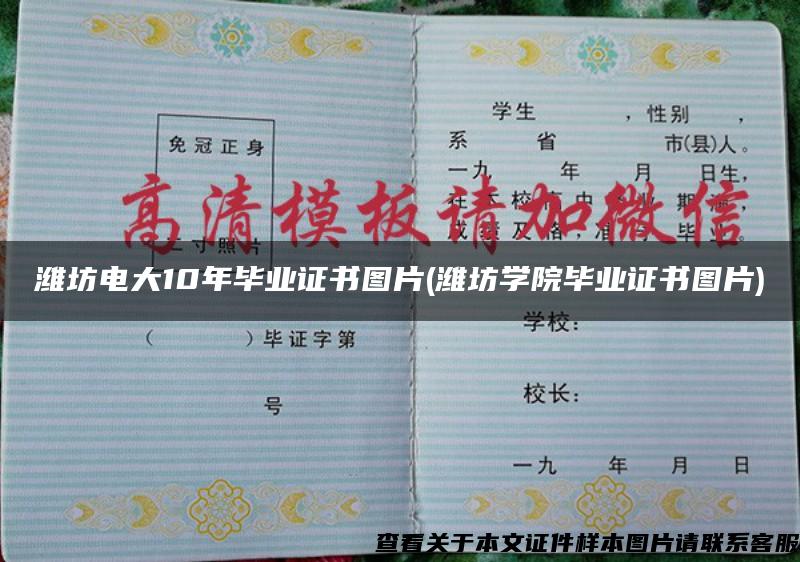 免冠正身
二寸照片
（ ）毕证字第
号
学生 ，性别 ，
系 省 市(县)人。
一九 年 月 日生，
在 校 中 业 期 ，
成绩及格，准 毕业。
高清模板请加微信
潍坊电大10年毕业证书图片(潍坊学院毕业证书图片)
学校：
校长：
一九 年 月 日
查看关于本文证件样本图片请联系客服